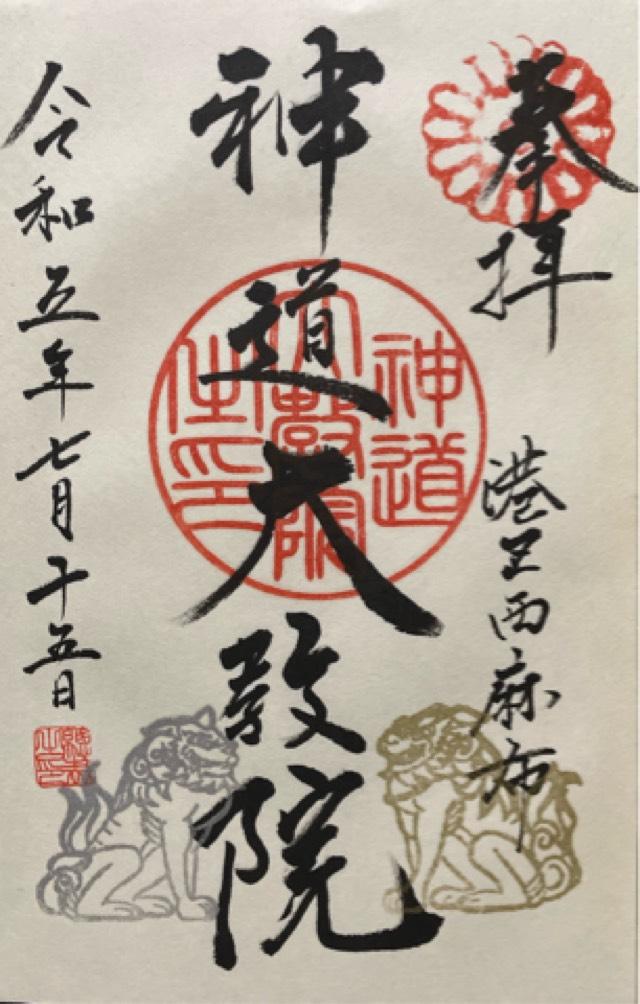 奉拝
港区西麻布
神道大教院
令和五年七月十五日
神道
大教院
之印